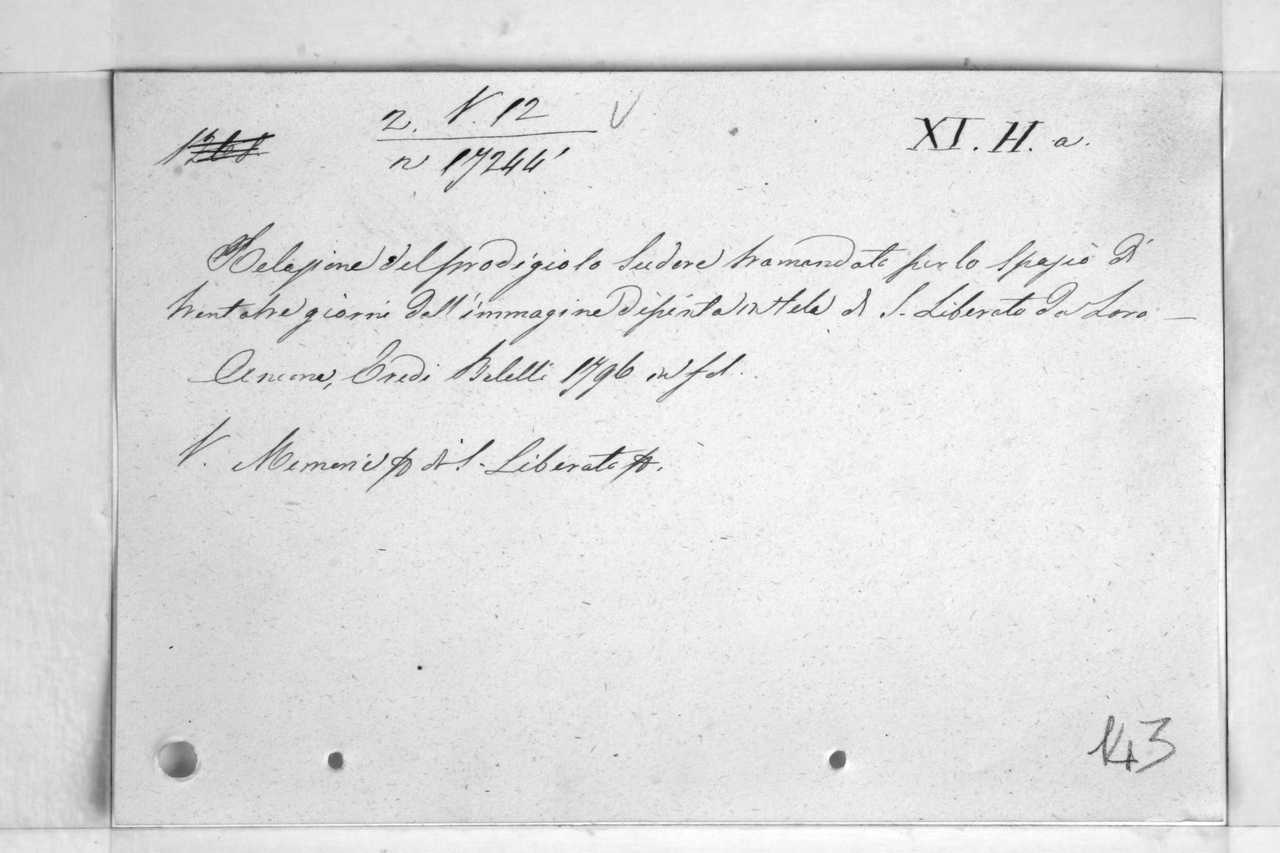 2. V. 12 V XI. H. a.
n 17244'
Relazione del prodigioso Sudore tramandato per lo spazio di
trentatre giorni dall'immagine dipinta in tela di S. Liberato da Loro —
Ancona, Eredi Belelli 1796 in fol.
V. Memorie di S. Liberato
143